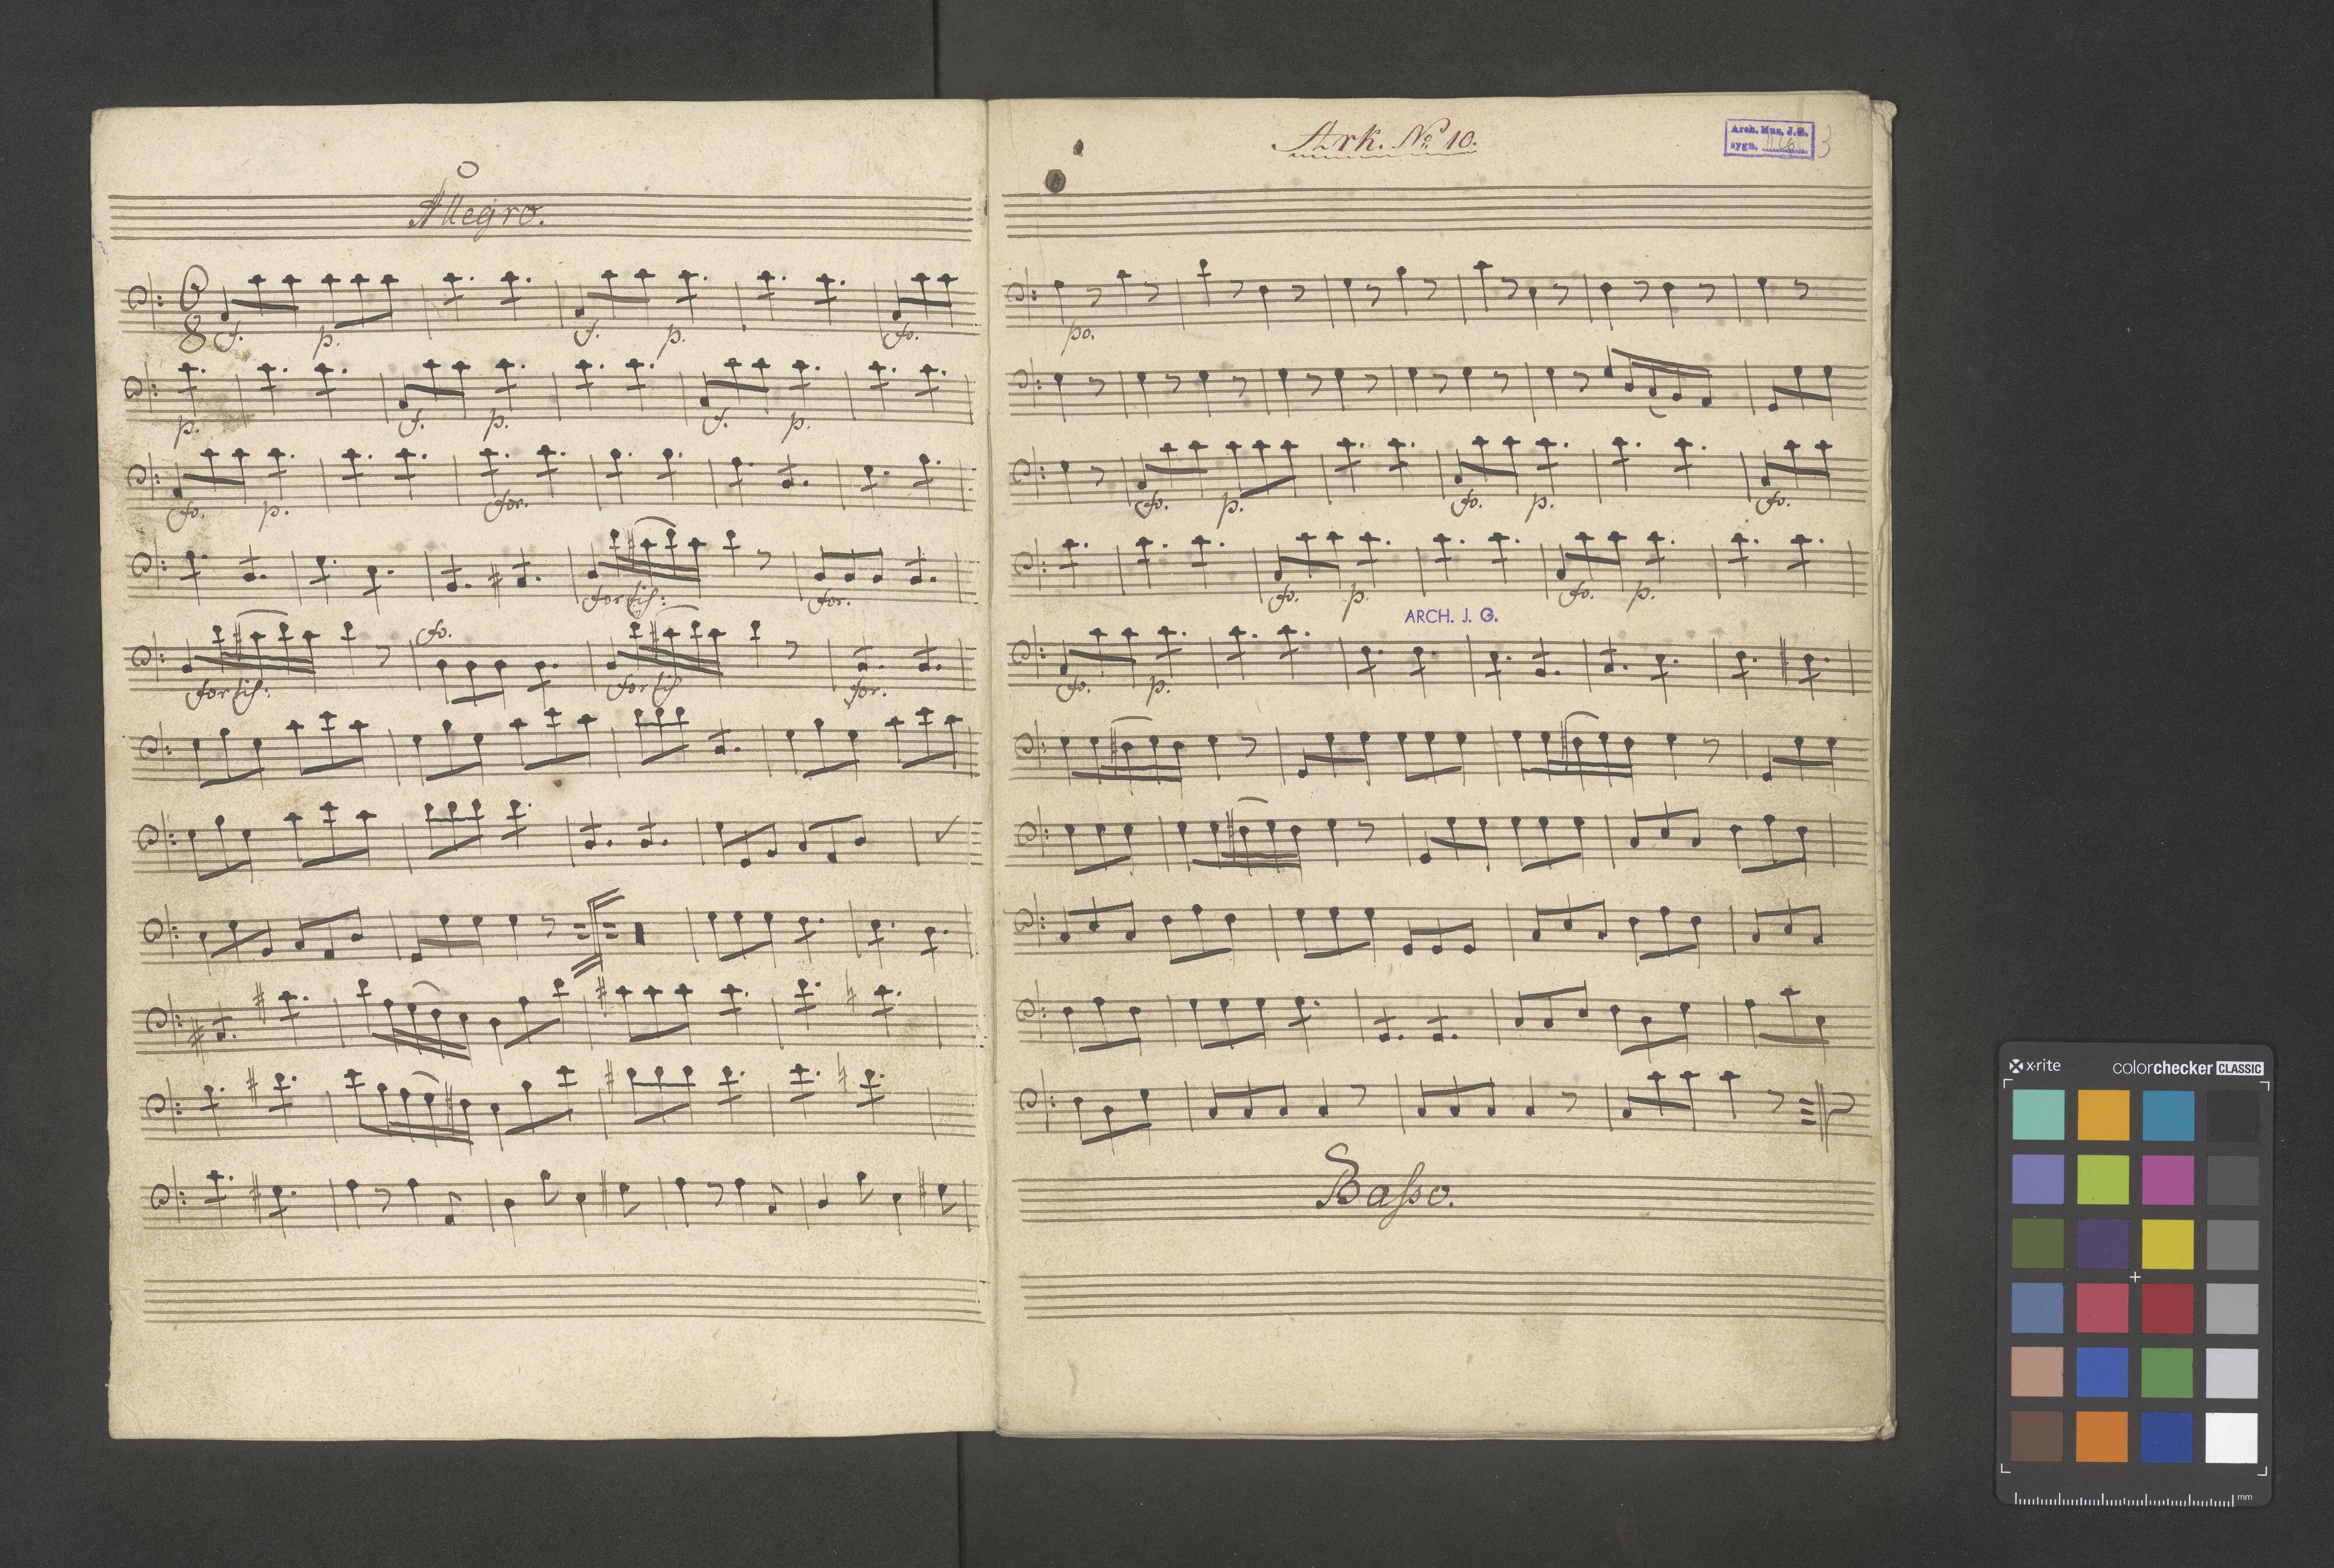 Allegro.
6
8
f. p. f. p. fo.
p. f. p. f. p.
fo. p. for.
fortiſ: for.
fortiſ: fo. fortiſ for.
Ark. No 10.
Arch. Muz. J.G.
sygn. 3
po.
fo. p. fo. p. fo.
fo. p. fo. p.
ARCH. J. G.
fo. p.
Baſso.
x·rite
colorchecker CLASSIC
mm